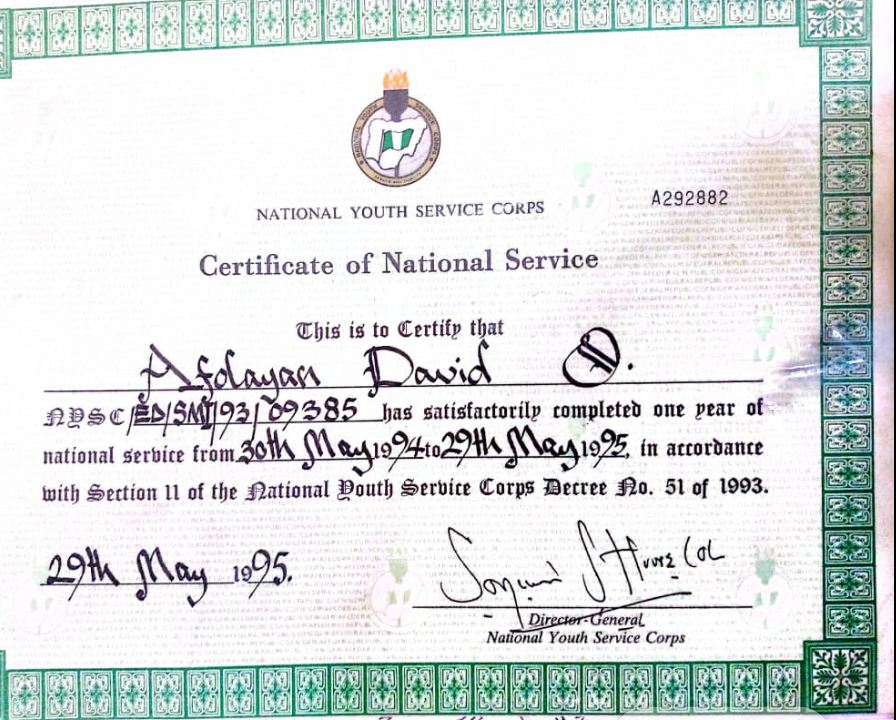 NATIONAL YOUTH SERVICE CORPS
A292882
Certificate of National Service
This is to Certify that
Afolayan David O.
NYSC/ED/SMT/93/09385 has satisfactorily completed one year of
national service from 30th May 1994 to 29th May 1995, in accordance
with Section 11 of the National Youth Service Corps Decree No. 51 of 1993.
29th May 1995.
Col
Director-General
National Youth Service Corps